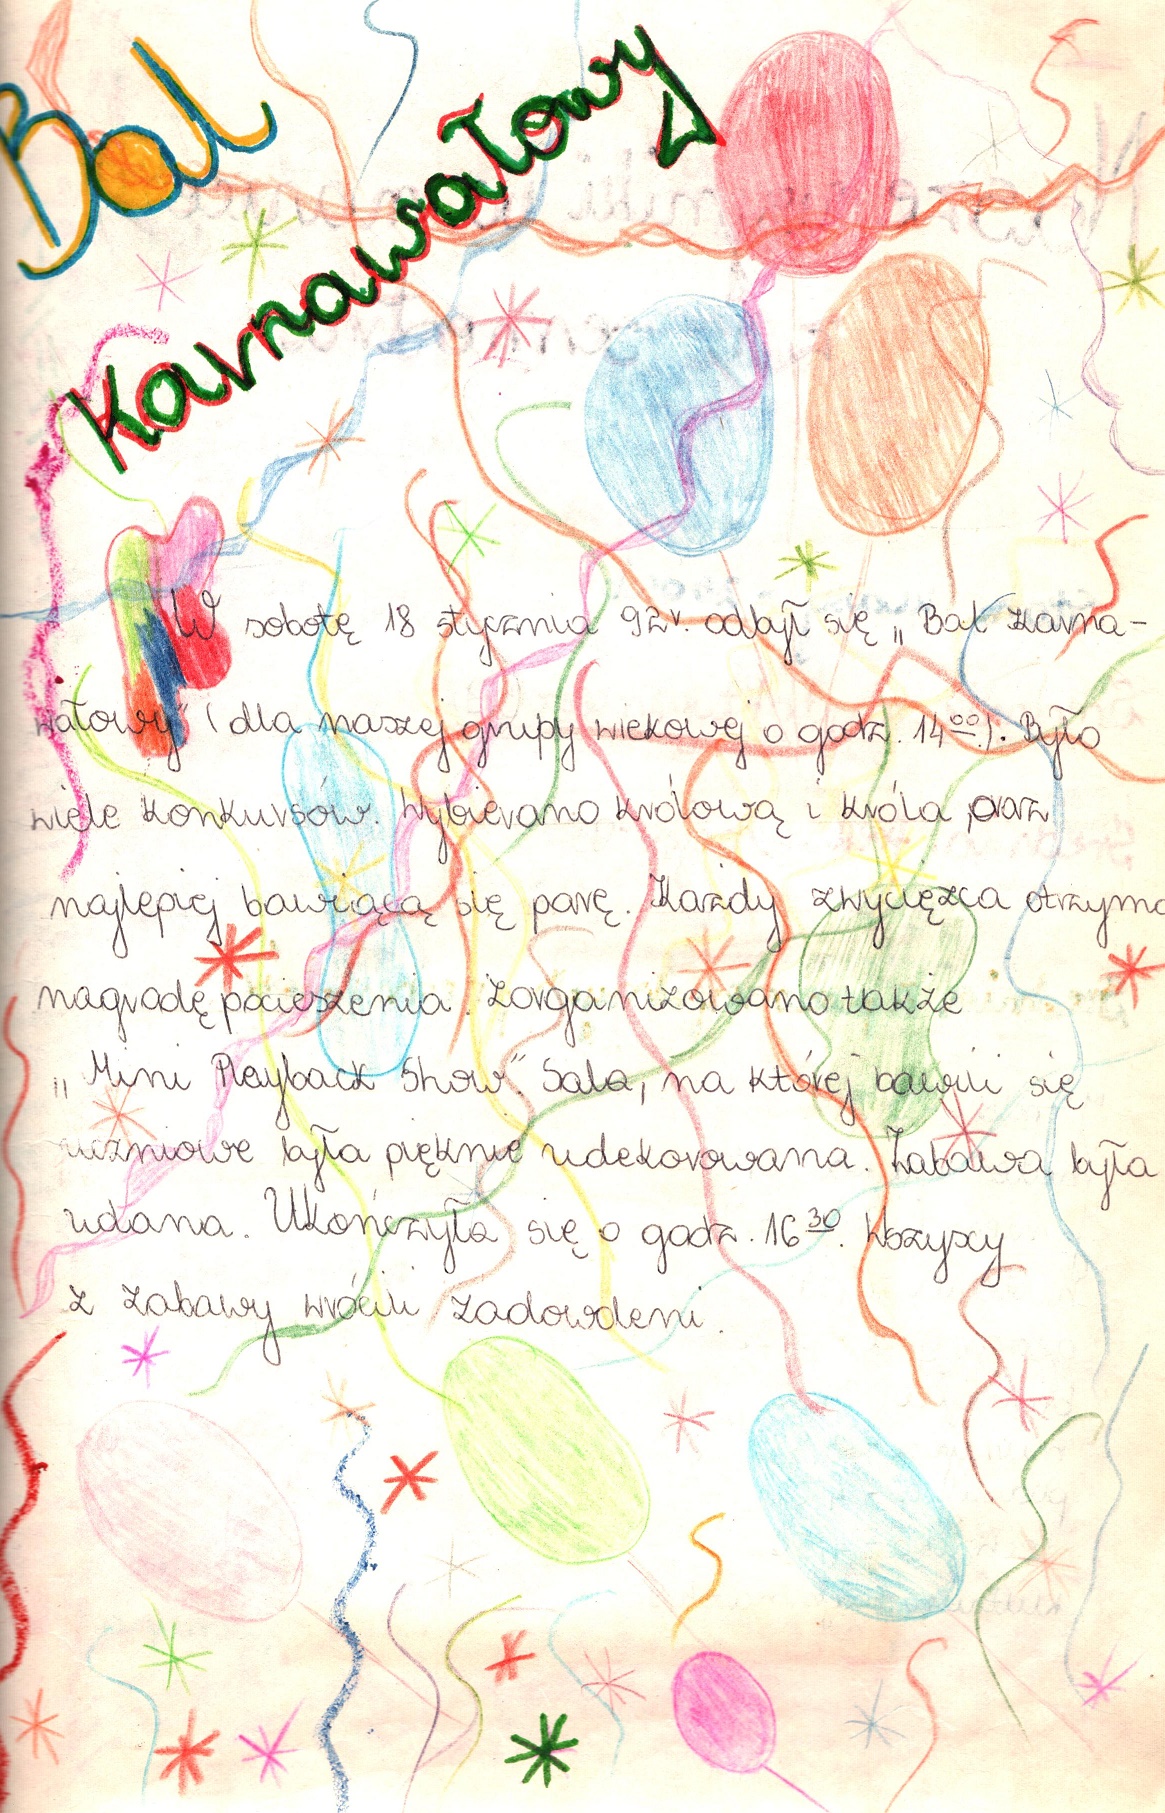 Bal
Karnawałowy
W sobotę 18 stycznia 92r. odbył się „Bal Karna-
wałowy" (dla naszej grupy wiekowej o godz. 14⁰⁰). Było
wiele konkursów. Wybierano królową i króla, oraz
najlepiej bawiącą się parę. Każdy zwycięzca otrzyma
nagrodę pocieszenia. Zorganizowano także
„Mini Playback Show". Sala, na której bawili się
uczniowie była pięknie udekorowana. Zabawa była
udana. Ukończyła się o godz. 16³⁰. Wszyscy
z zabawy wrócili zadowoleni.